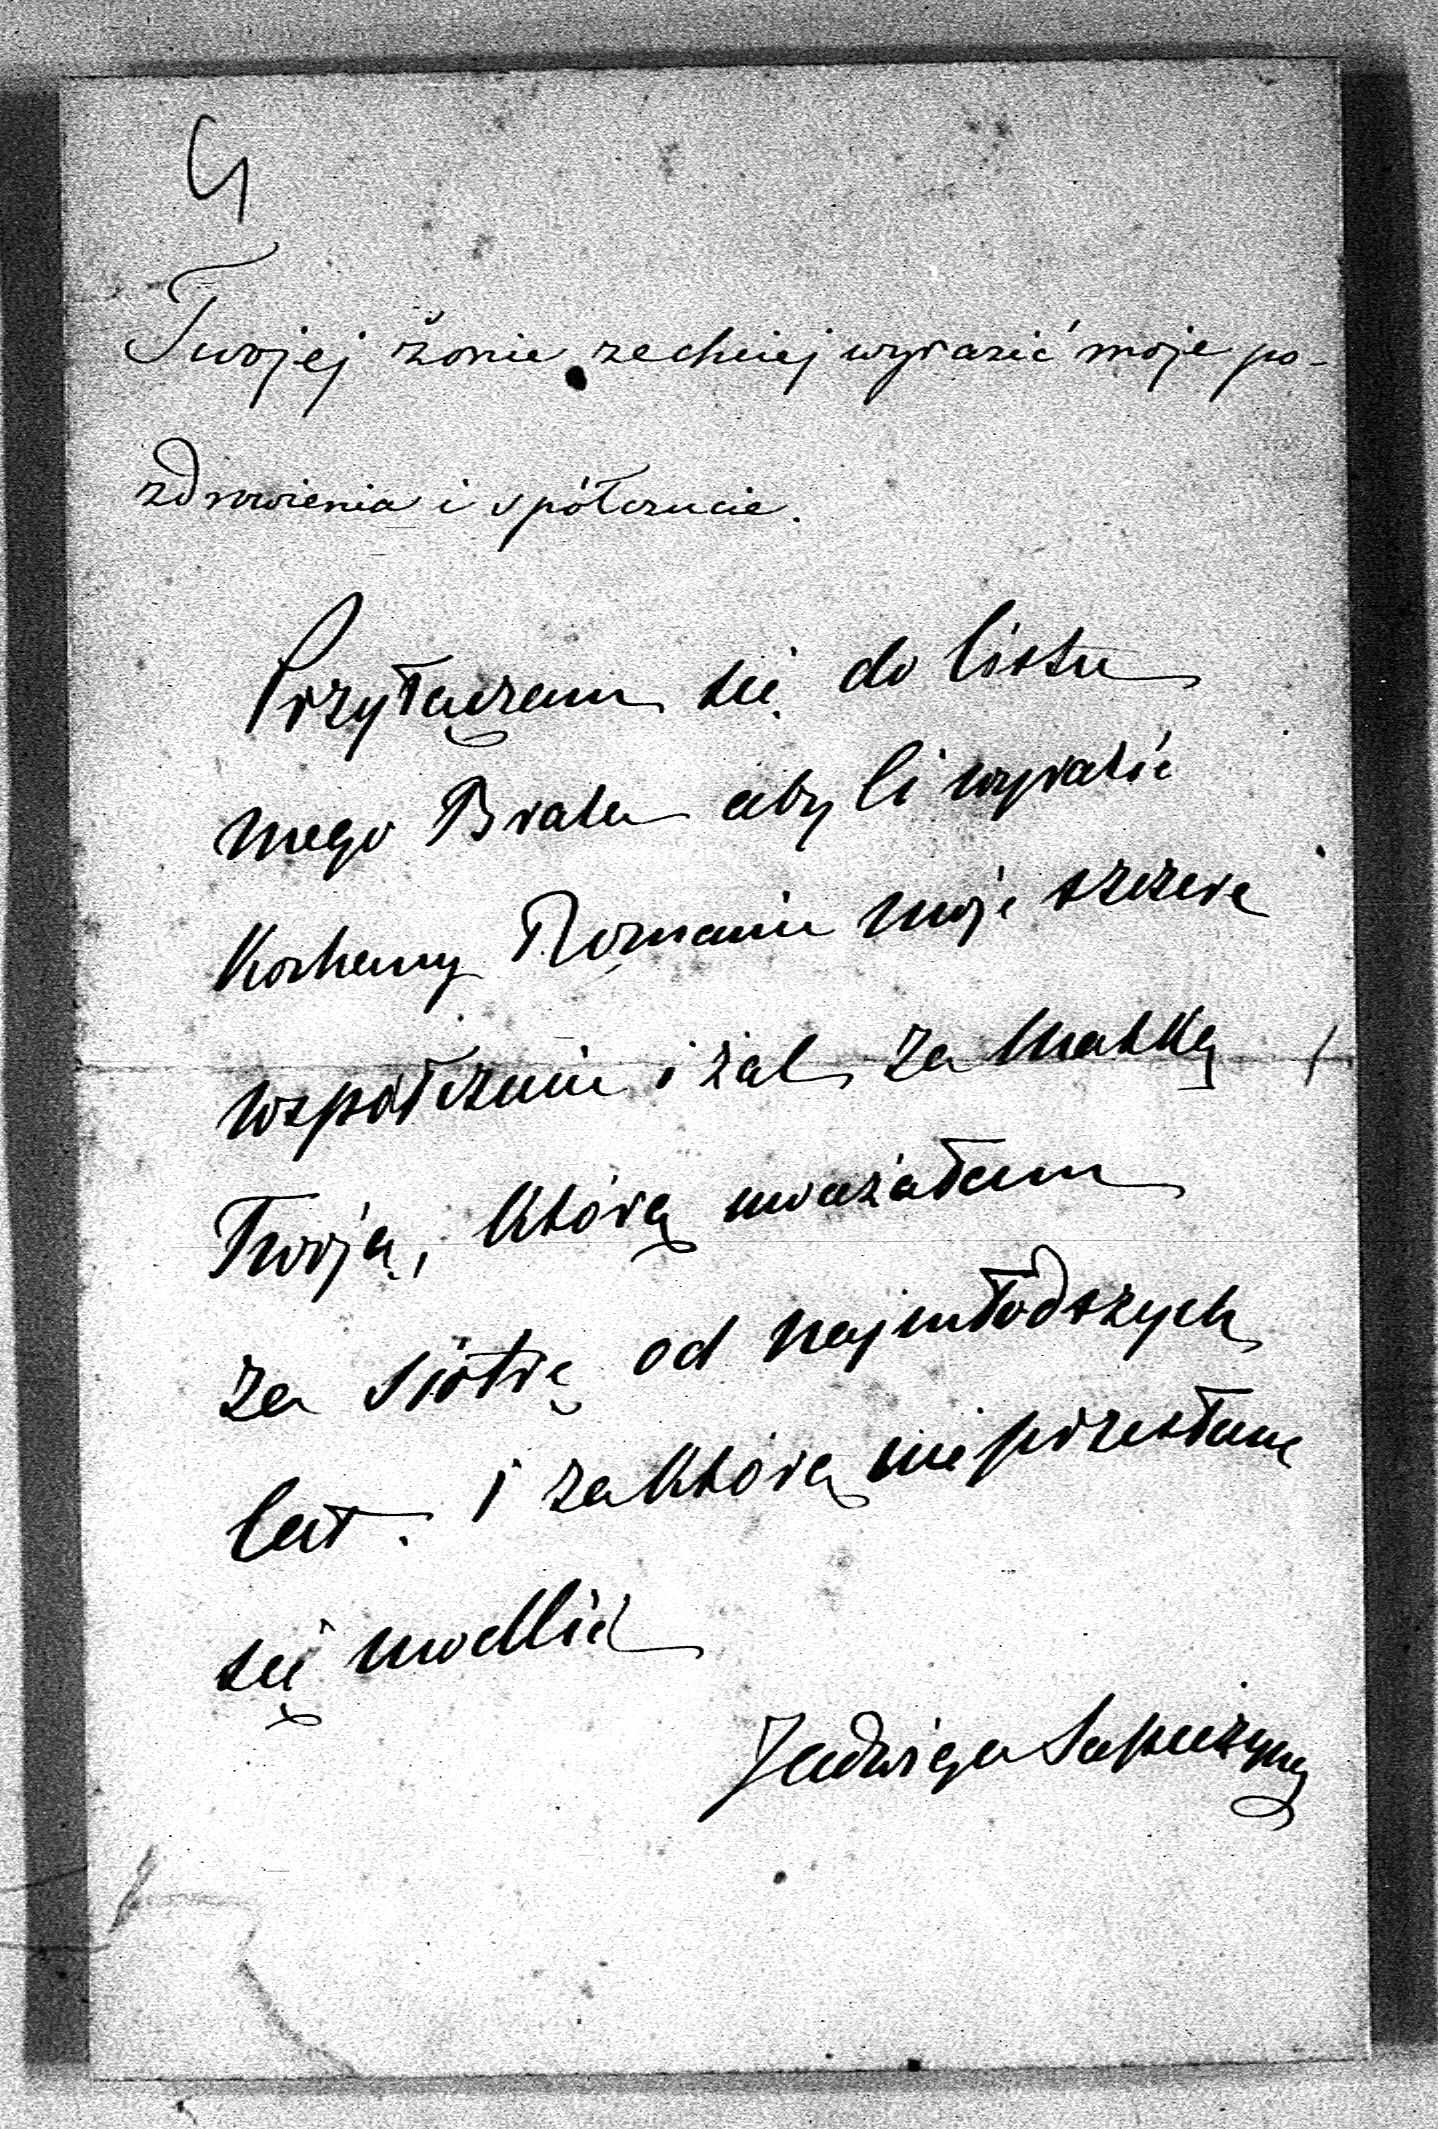 4
Twojej żonie zechciej wyrazić moje po-
zdrowienia i spółczucie.
Przyłączam się do listu
mego Brata aby Ci wyrazić
Kochany Romanie moje szczere
współczucie i żal za Matką
Twoją, którą uważałam
za siostrę od najmłodszych
lat. i za którą nie przestanę
się modlić
Jadwiga Sapieżyną